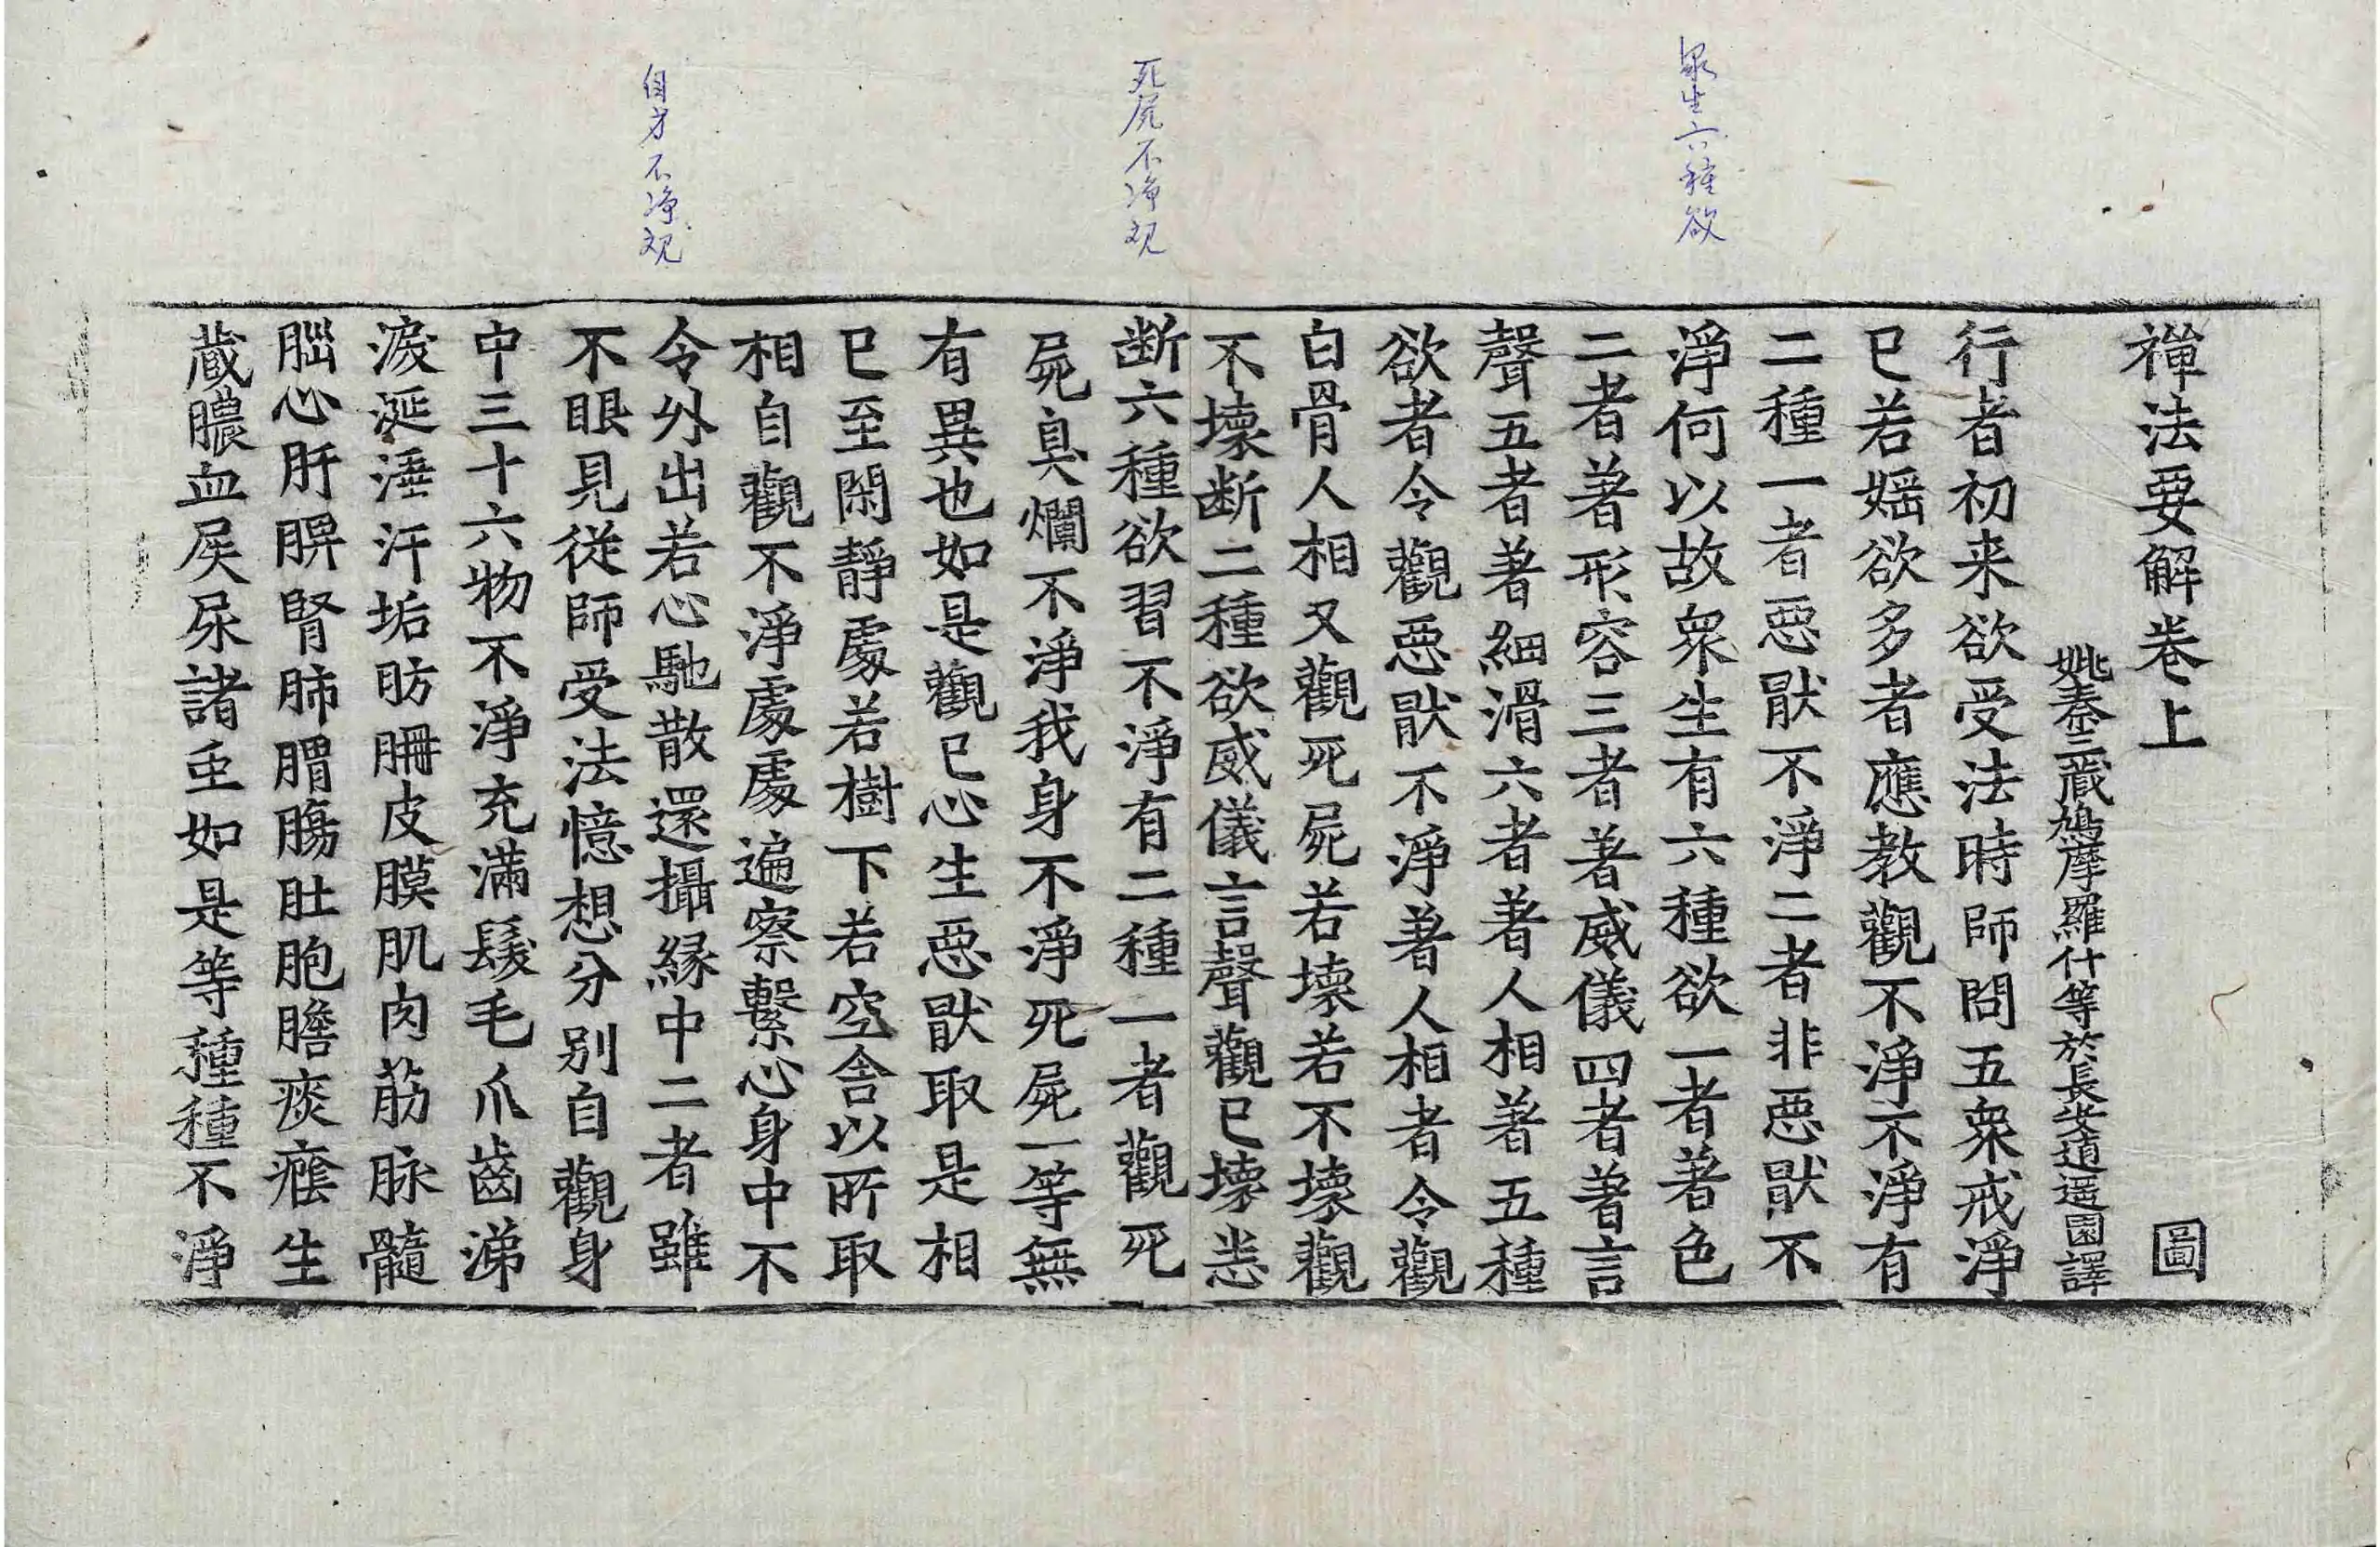 衆生六種欲
死屍不净观
自身不净观
禪法要解卷上 圖
姚秦三藏鳩摩羅什等於長安逍遥園譯
行者初来欲受法時師問五衆戒淨
已若婬欲多者應教觀不淨不淨有
二種一者惡猒不淨二者非惡猒不
淨何以故衆生有六種欲一者著色
二者著形容三者著威儀四者著言
聲五者著細滑六者著人相著五種
欲者令觀惡猒不淨著人相者令觀
白骨人相又觀死屍若壞若不壞觀
不壞断二種欲威儀言聲觀已壞悉
断六種欲習不淨有二種一者觀死
屍臭爛不淨我身不淨死屍一等無
有異也如是觀已心生惡猒取是相
已至閑靜處若樹下若空舍以所取
相自觀不淨處處遍察繫心身中不
令外出若心馳散還攝縁中二者雖
不眼見從師受法憶想分别自觀身
中三十六物不淨充滿髮毛爪齒涕
淚涎洟汗垢肪𦙱皮膜肌肉筋脉髓
腦心肝脾腎肺胃腸肚胞膽痰癊生
蔵膿血屎尿諸虫如是等種種不淨